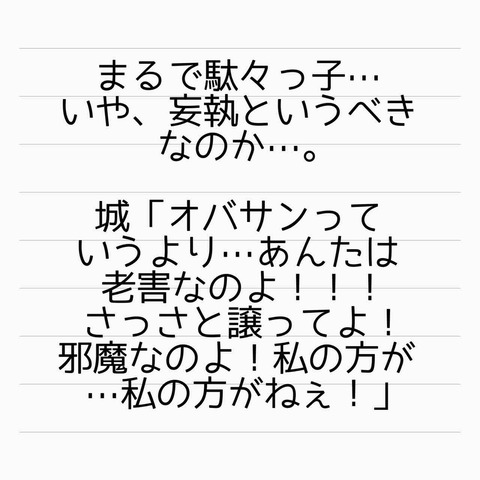 まるで駄々っ子…
いや、妄執というべき
なのか…。
城「オバサンって
いうより…あんたは
老害なのよ！！！
さっさと譲ってよ！
邪魔なのよ！私の方が
…私の方がねぇ！」